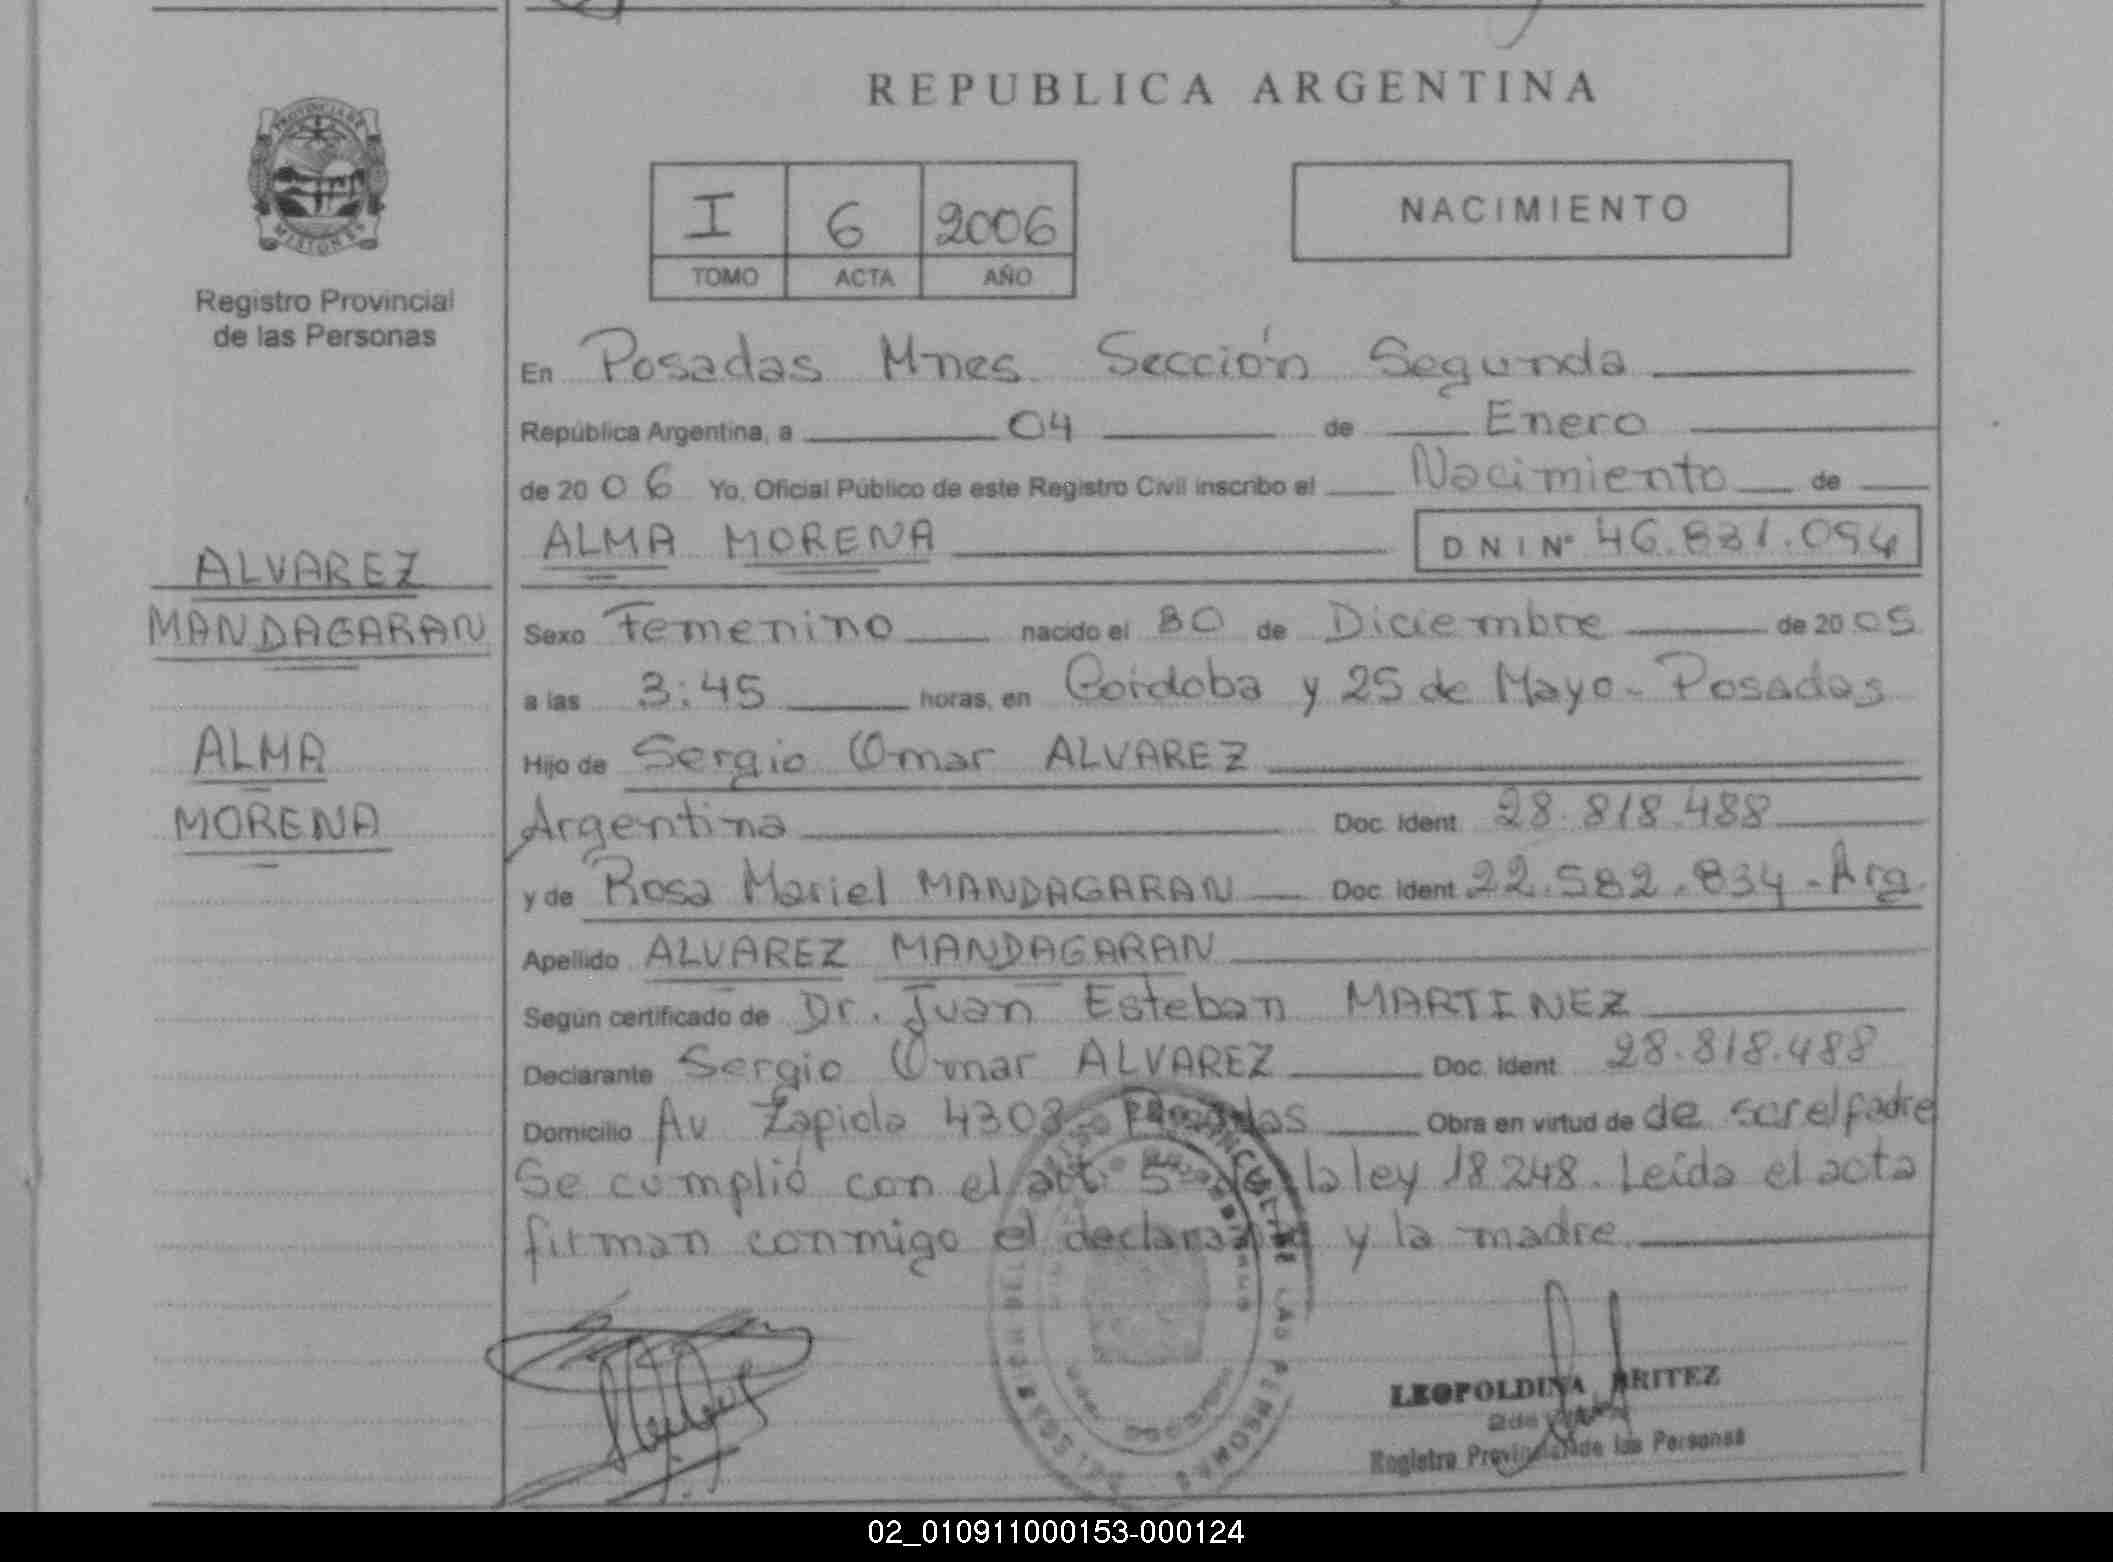 REPUBLICA ARGENTINA
PROVINCIA DE
MISIONES
Registro Provincial
de las Personas
I 6 2006
TOMO ACTA AÑO
NACIMIENTO
En Posadas Mnes. Sección Segunda
República Argentina, a 04 de Enero
de 2006 Yo, Oficial Público de este Registro Civil inscribo el Nacimiento de
ALMA MORENA DNI Nº 46.831.094
ALVAREZ
MANDAGARAN
ALMA
MORENA
Sexo Femenino nacido el 30 de Diciembre de 2005
a las 3:45 horas, en Córdoba y 25 de Mayo - Posadas
Hijo de Sergio Omar ALVAREZ
Argentina Doc. Ident. 28.818.488
y de Rosa Mariel MANDAGARAN Doc. Ident. 22.582.834 - Arg.
Apellido ALVAREZ MANDAGARAN
Según certificado de Dr. Juan Esteban MARTINEZ
Declarante Sergio Omar ALVAREZ Doc. Ident. 28.818.488
Domicilio Av Zapiola 4303 Posadas Obra en virtud de de ser el padre
Se cumplió con el art. 5º de la ley 18248. Leída el acta
firman conmigo el declarante y la madre.
LEOPOLDINA BRITEZ
Registro Provincial de las Personas
02_010911000153-000124